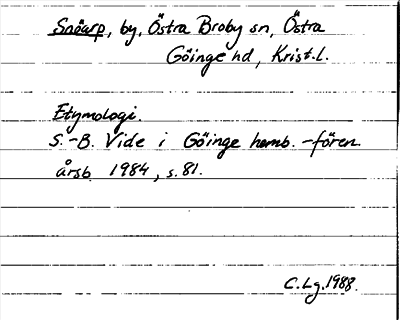 Snöarp, by, Östra Broby sn, Östra
Göinge hd, Krist.l.
Etymologi.
S.-B. Vide i Göinge hemb.-fören.
årsb. 1984, s. 81.
C.Lg. 1988.